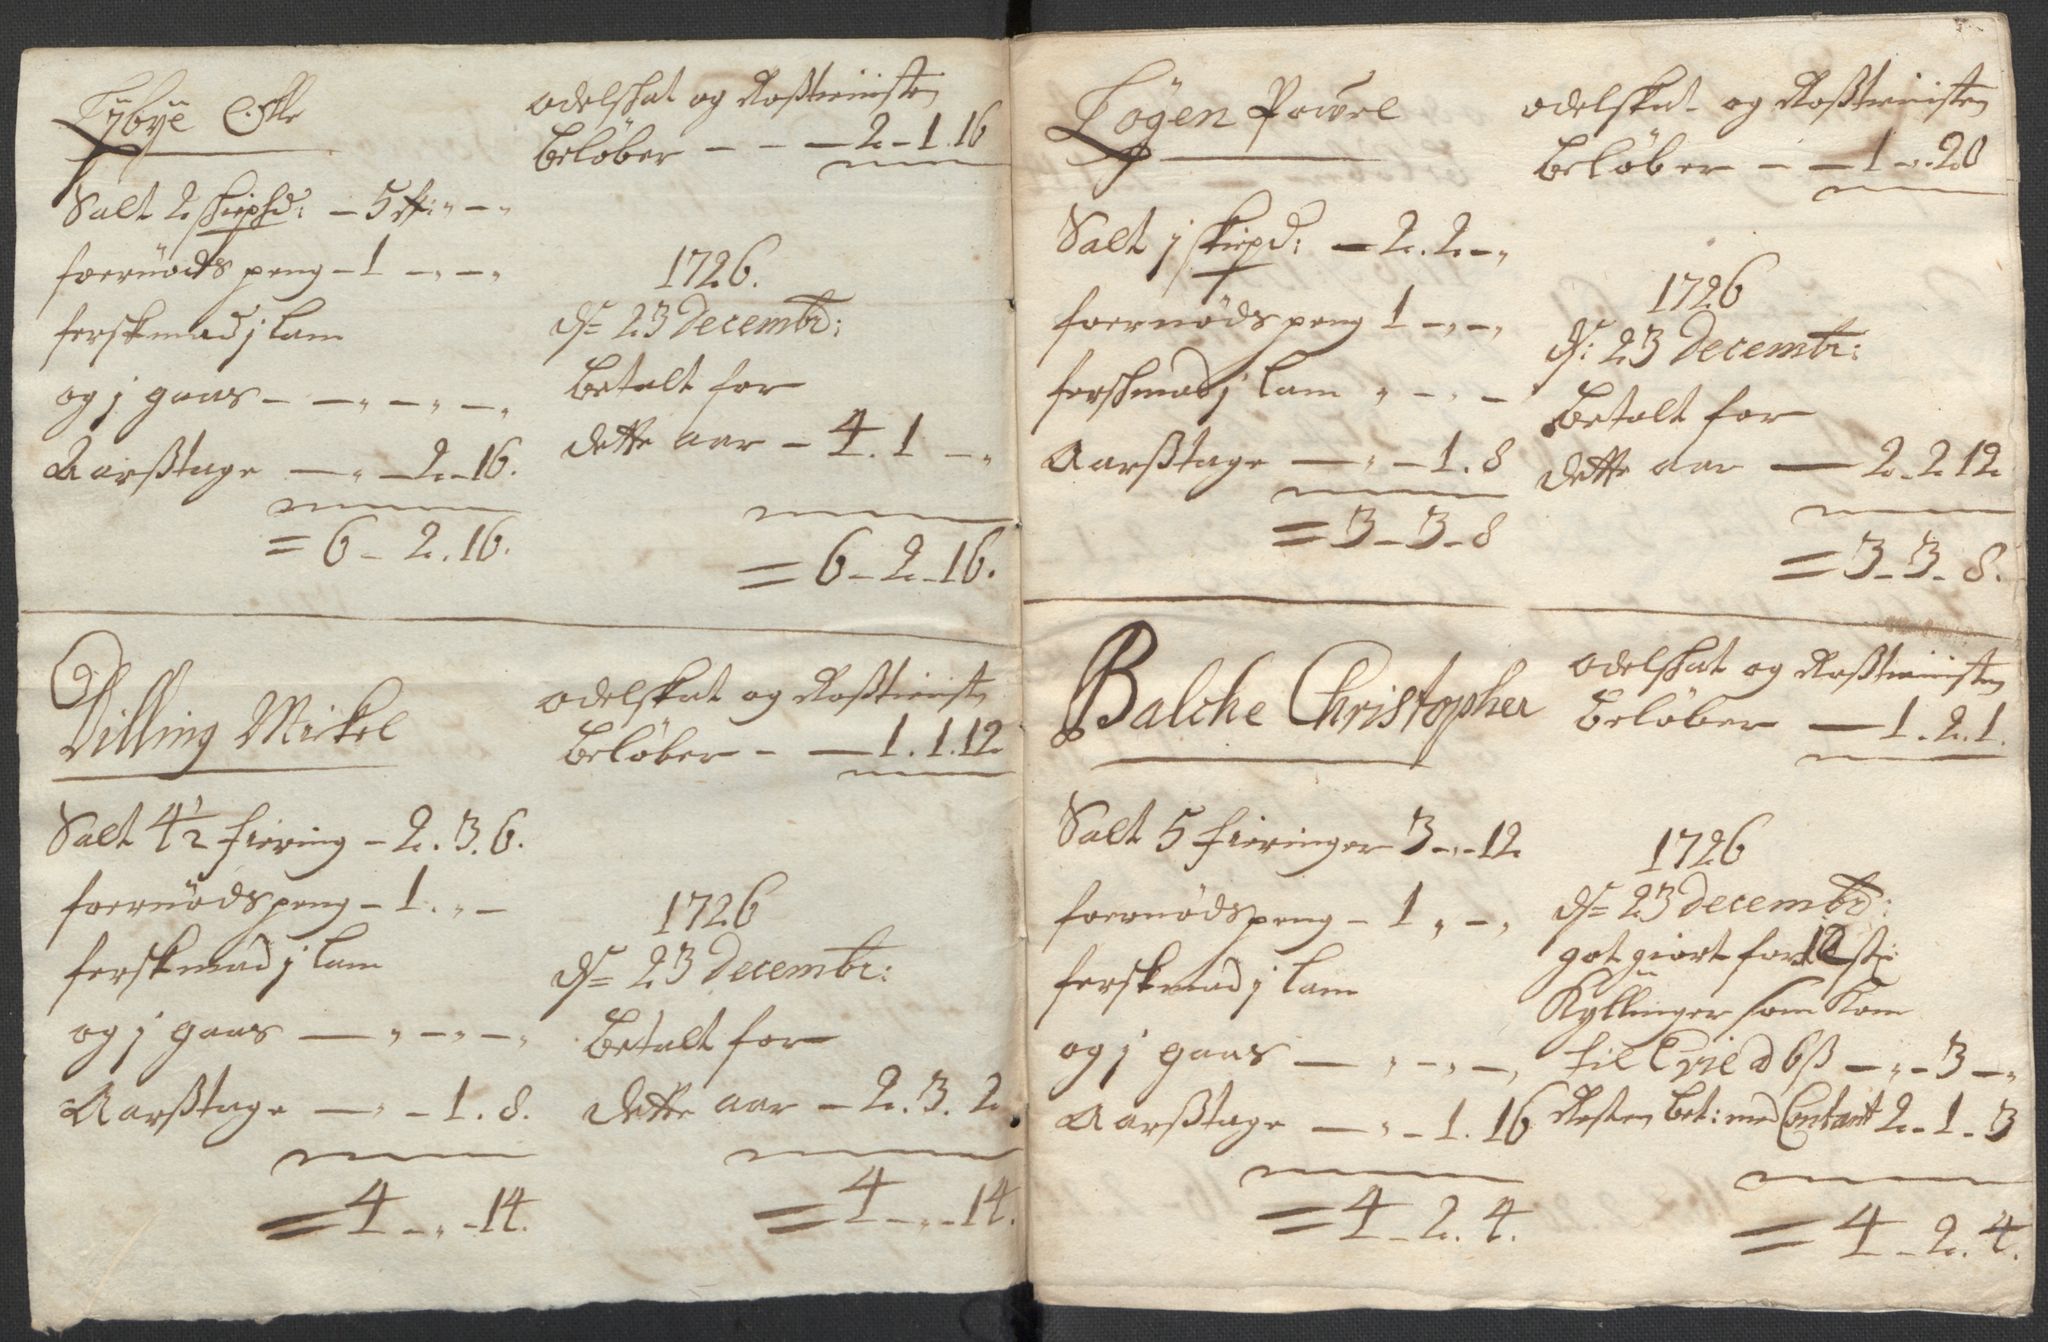 Tÿbÿe
Salt 2 skiephd: – 5 – " –
foernöds peng – 1 – " – "
ferskmad j lam
og j gaas – – " – " – "
Aarßtage – " – 2 – 16.
= 6 – 2. 16.
odelskat og Roßtienisten
beløber – – – 2 – 1. 16
1726.
ds= 23 Decembr:
betalt for
dette aar – 4. 1 – "
= 6 – 2 – 16.
Dilling Mickel
Salt 4 1/2 fiering – 2. 3. 6.
foernöds peng – 1. " –
ferskmad j lam
og j gaas – " – " – "
Aarßtage – " – 1. 8.
= 4 – " – 14.
odelskat og Roßtienisten
beløber – – 1. 1. 12
1726
ds= 23 Decembr:
betalt for
dette aar – 2. 3. 2
= 4 – " – 14.
Løgen Powel
Salt j skiepd: – 2. 2 – "
foernöds peng 1 – " – "
ferskmad j lam " – " –
Aarßtage – " – 1. 8
= 3 – 3 – 8
odelskat og Roßtienisten
beløber – – 1 – " 20
1726
ds: 23 Decembr:
betalt for
dette aar – 2 – 2. 12
= 3 – 3 – 8.
Balche Christopher
Salt 5 fieringer 3 – " – 12
foernöds peng – 1 " – "
ferskmad j lam
og j gaas – " – " – "
Aarßtage – " – 1. 16
= 4 – 2. 4.
odelskat og Roßtienisten
beløber – 1. 2. 1.
1726
ds= 23 Decembr:
got giort for 12 st:
Kyllinger som Kom
til á 6 ß – " – 3 – "
Resten bet: med Contant 2 – 1 – 3
= 4 – 2. 4.